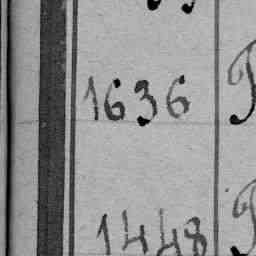 1636
1448